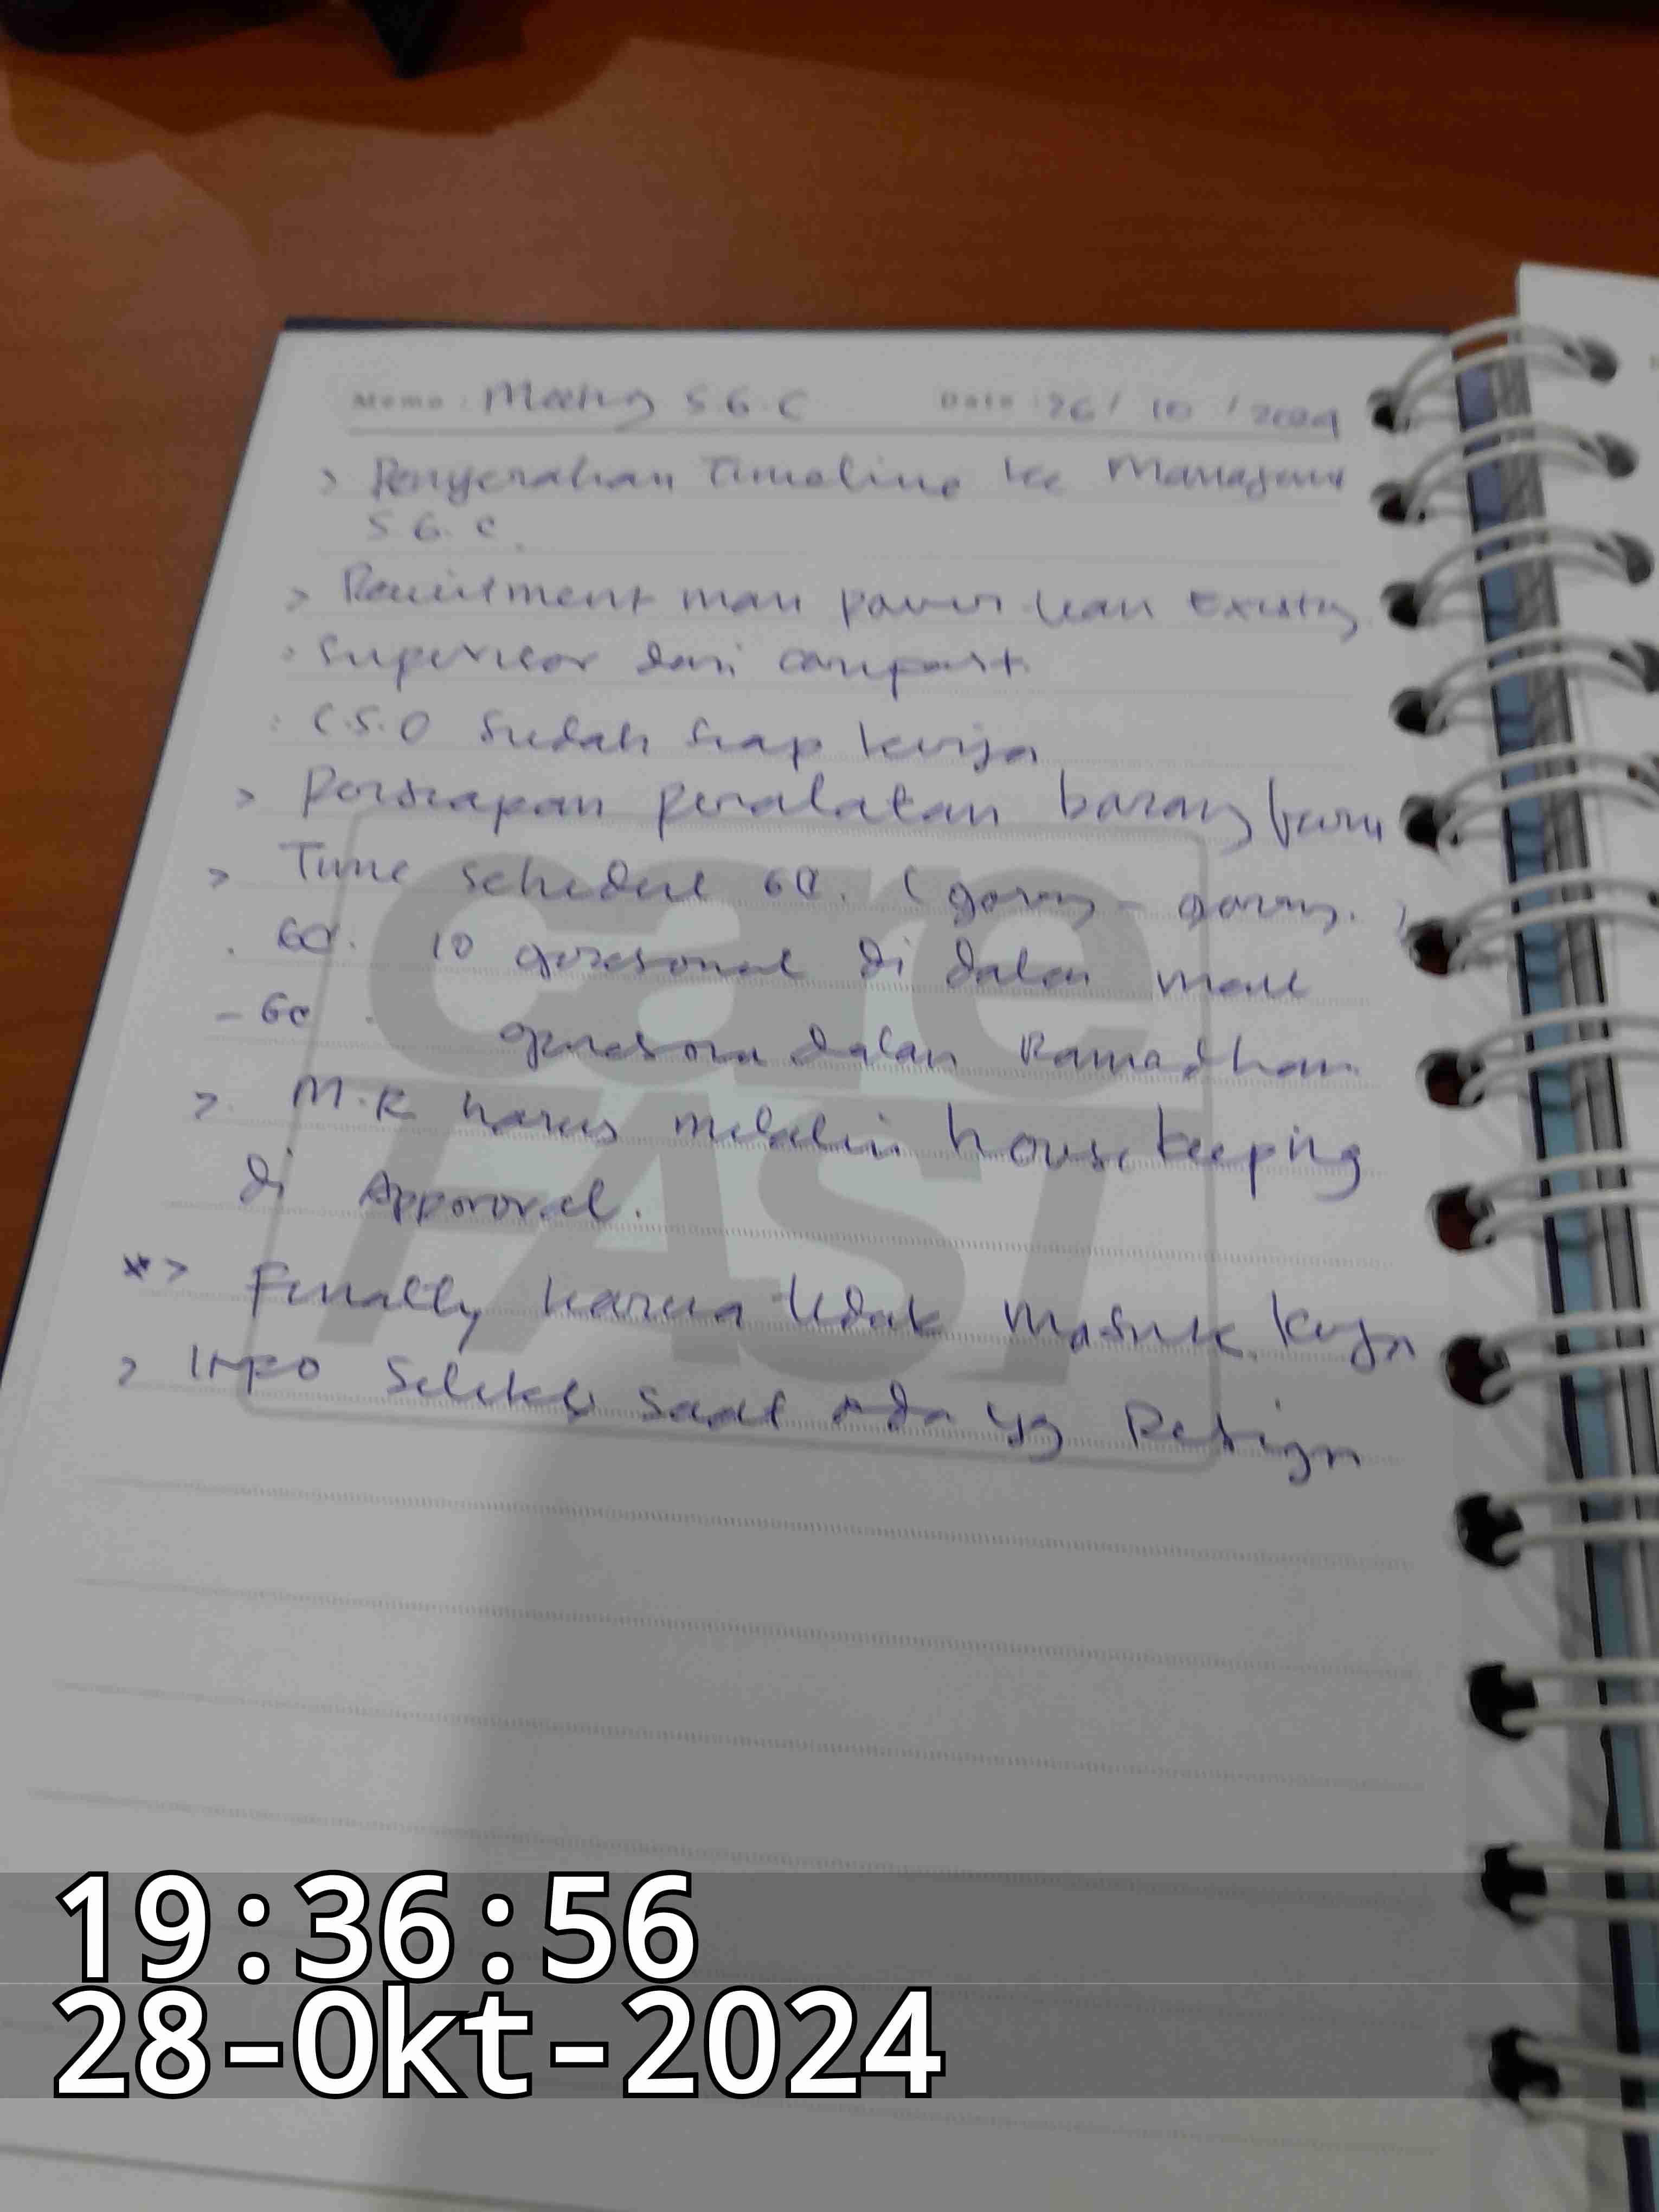 Memo : Meeting S.G.C Date : 26 / 10 / 2024
> Penyerahan Timeline ke
S G. C.
> man power
: Supervisor dari
: C.S.O Sudah Siap kerja
> Persiapan peralatan barang baru
> Time Schedule GC. ( gorong - gorong. )
. GC. 10 di dalam mall
- GC dalam Ramadhan.
> M.R harus melalui housekeeping
di Appororal.
*> karena tidak masuk kerja
> Info Seleksi saat ada yg Resign
care
FAST
19:36:56
28-Okt-2024